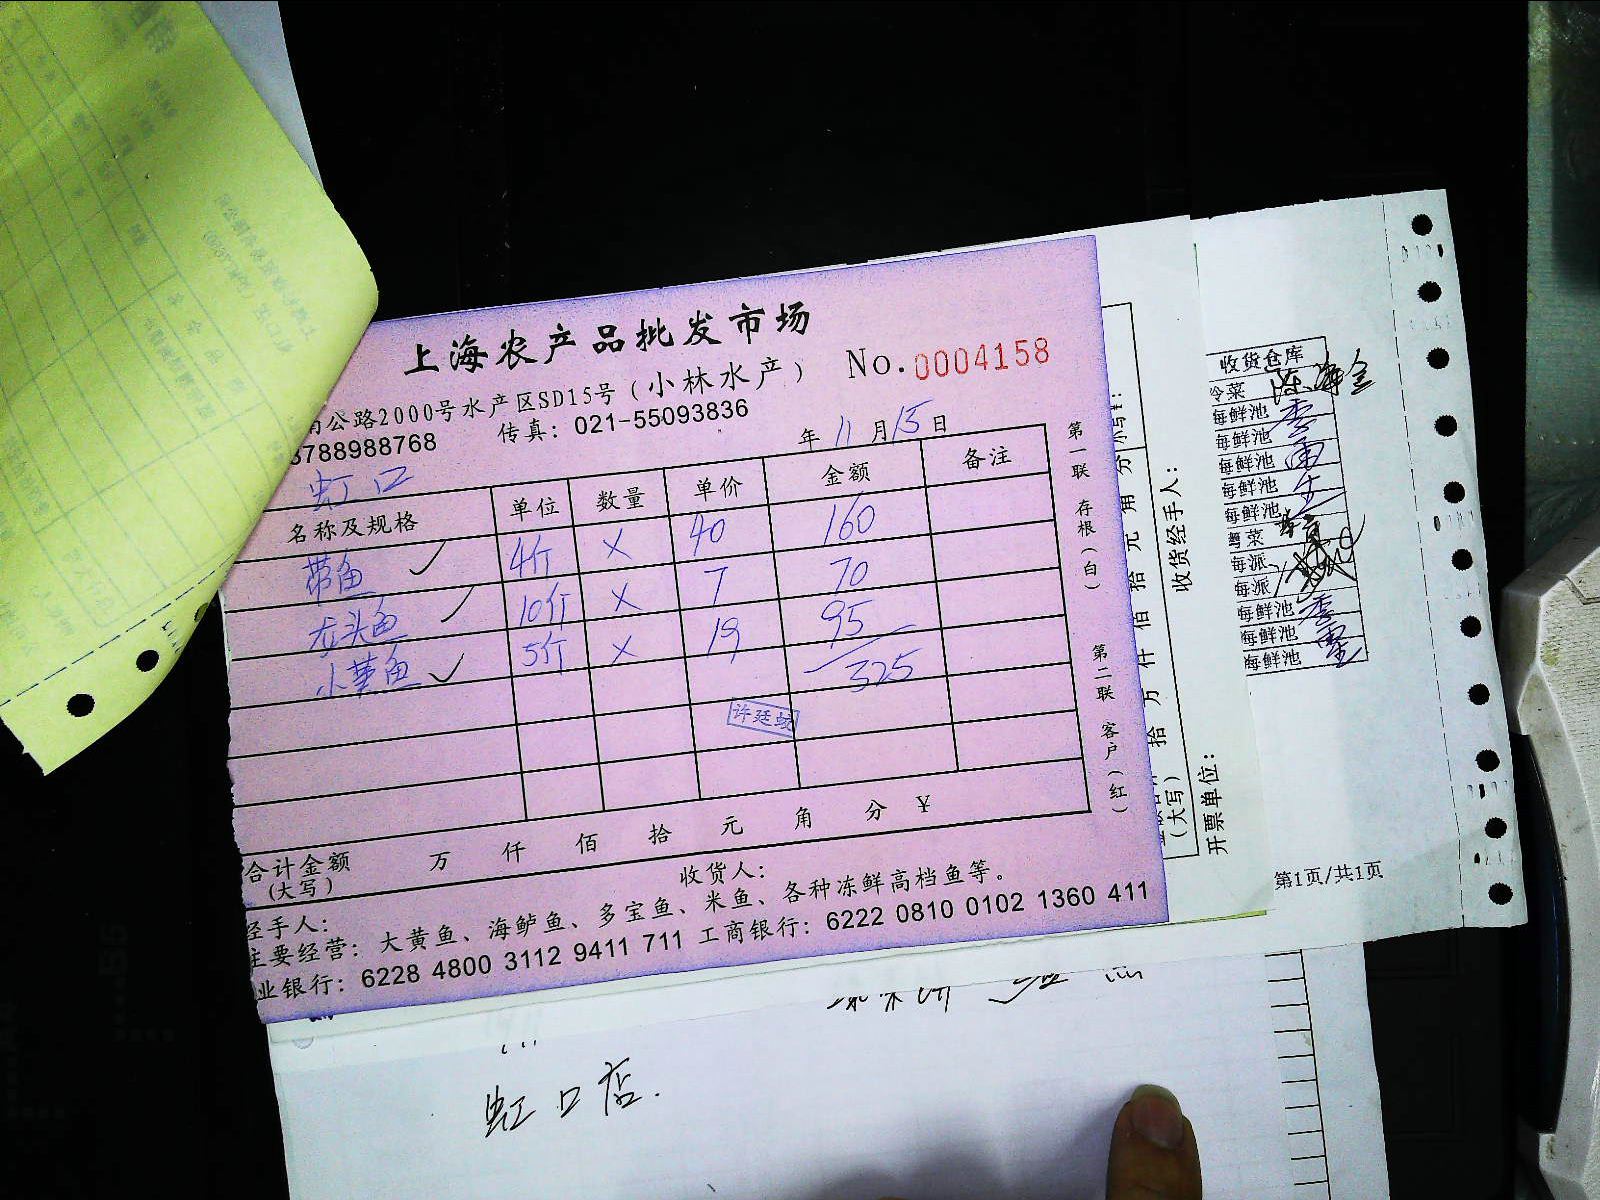 上海农产品批发市场
公路2000号水产区SD15号（小林水产） No.0004158
8788988768 传真：021-55093836
年 11 月 15 日
虹口
名称及规格 单位 数量 单价 金额 备注
带鱼 ✓ 4斤 × 40 160
龙头鱼 ✓ 10斤 × 7 70
小黄鱼 ✓ 5斤 × 19 95
325
许廷
合计金额 万 仟 佰 拾 元 角 分 ¥
(大写)
经手人： 收货人：
主要经营：大黄鱼、海鲈鱼、多宝鱼、米鱼、各种冻鲜高档鱼等。
业银行：6228 4800 3112 9411 711 工商银行：6222 0810 0102 1360 411
第一联 存根（白） 第二联 客户（红）
拾 万 仟 佰 拾 元 角 分
(大写)
收货经手人：
开票单位：
收货仓库
冷菜
海鲜池
海鲜池
海鲜池
海鲜池
海鲜池
粤菜
海派
海派
海鲜池
海鲜池
海鲜池
第1页/共1页
虹口店.